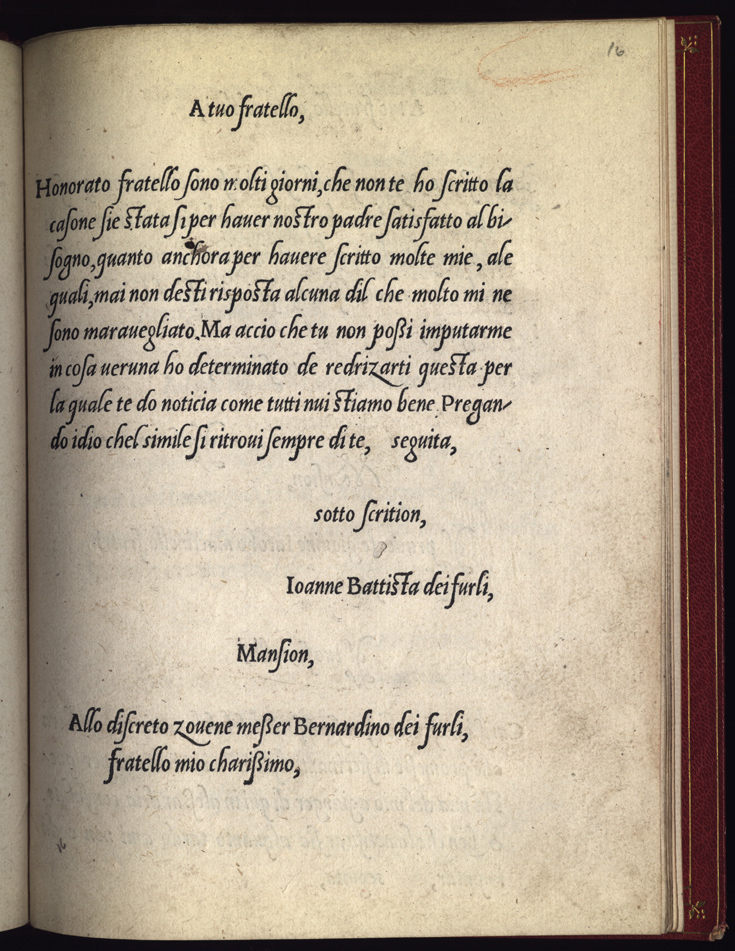 16
A tuo fratello,
Honorato fratello ſono molti giorni, che non te ho ſcritto la
caſone ſie ſtata ſi per hauer noſtro padre ſatisfatto al bi-
ſogno, quanto anchora per hauere ſcritto molte mie, ale
quali, mai non deſti riſpoſta alcuna dil che molto mi ne
ſono marauegliato. Ma accio che tu non poßi imputarme
in coſa ueruna ho determinato de redrizarti queſta per
la quale te do noticia come tutti nui ſtiamo bene. Pregan-
do idio chel simile ſi ritroui ſempre di te, seguita,
sotto ſcrition,
Ioanne Battiſta dei furli,
Manſion,
Allo diſcreto zouene meßer Bernardino dei furli,
fratello mio charißimo,
16